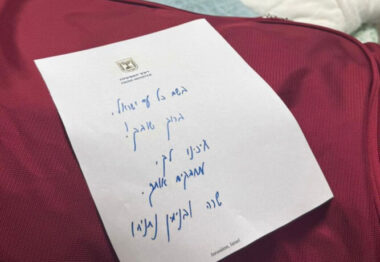 ראש הממשלה
בשם כל עם ישראל.
ברוך שובך!
חיכינו לך.
מחבקים אותך.
שרה ובנימין נתניהו
Jerusalem, Israel